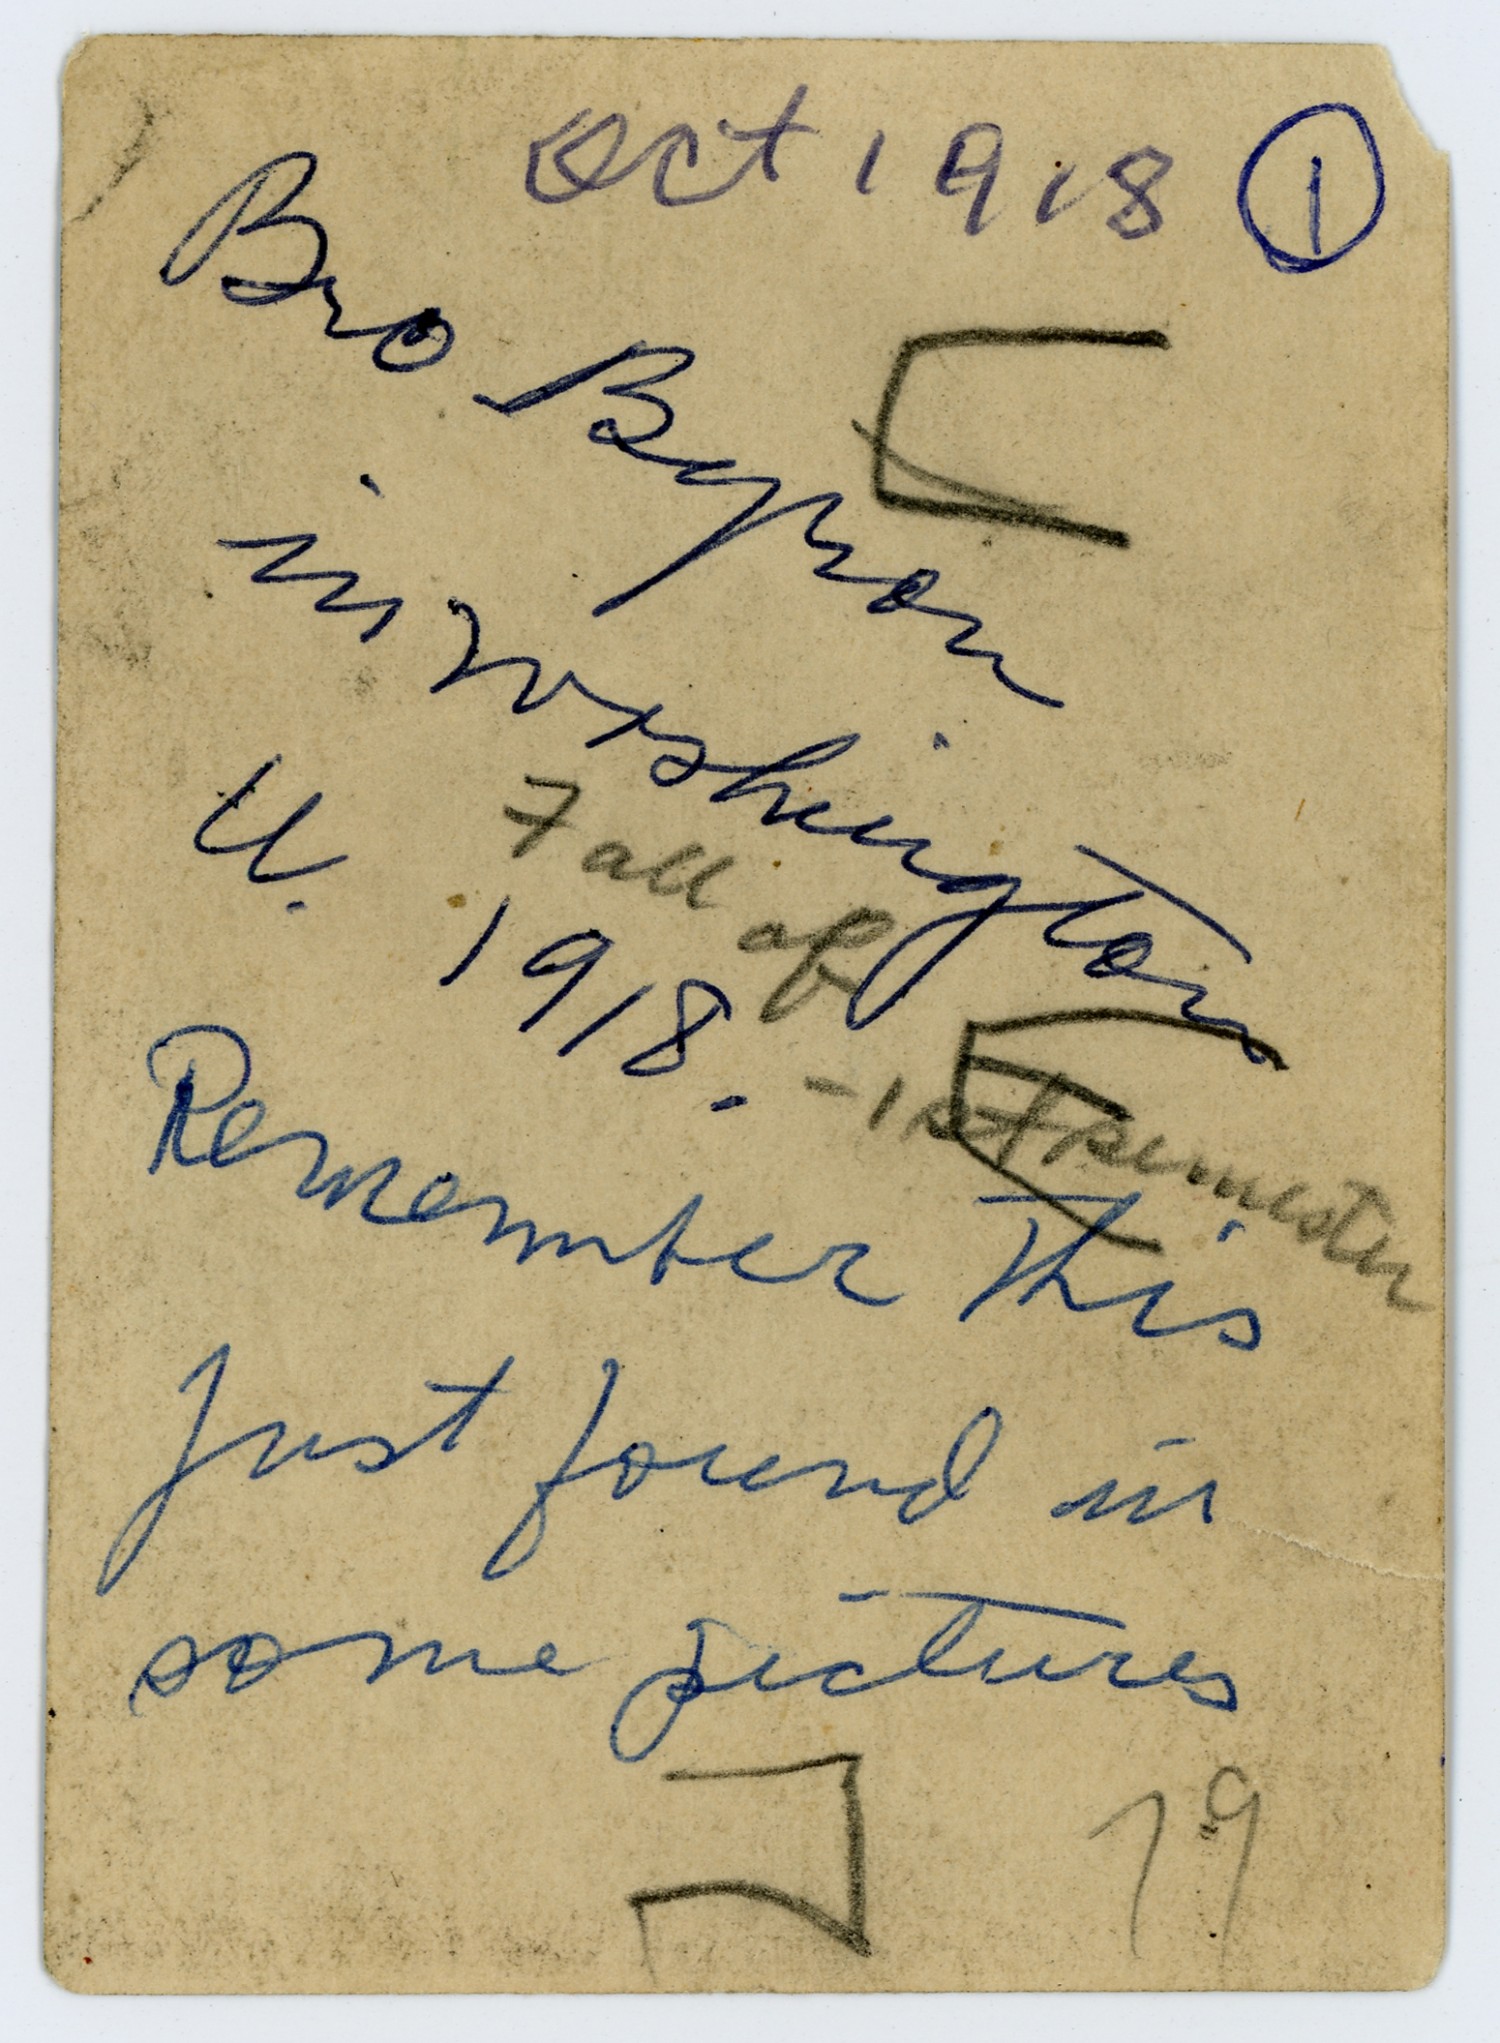 Oct 1918 1
Bro Byron
in Washington
U. Fall of
1918.
-1st semester
Remember This
Just found in
some pictures
79